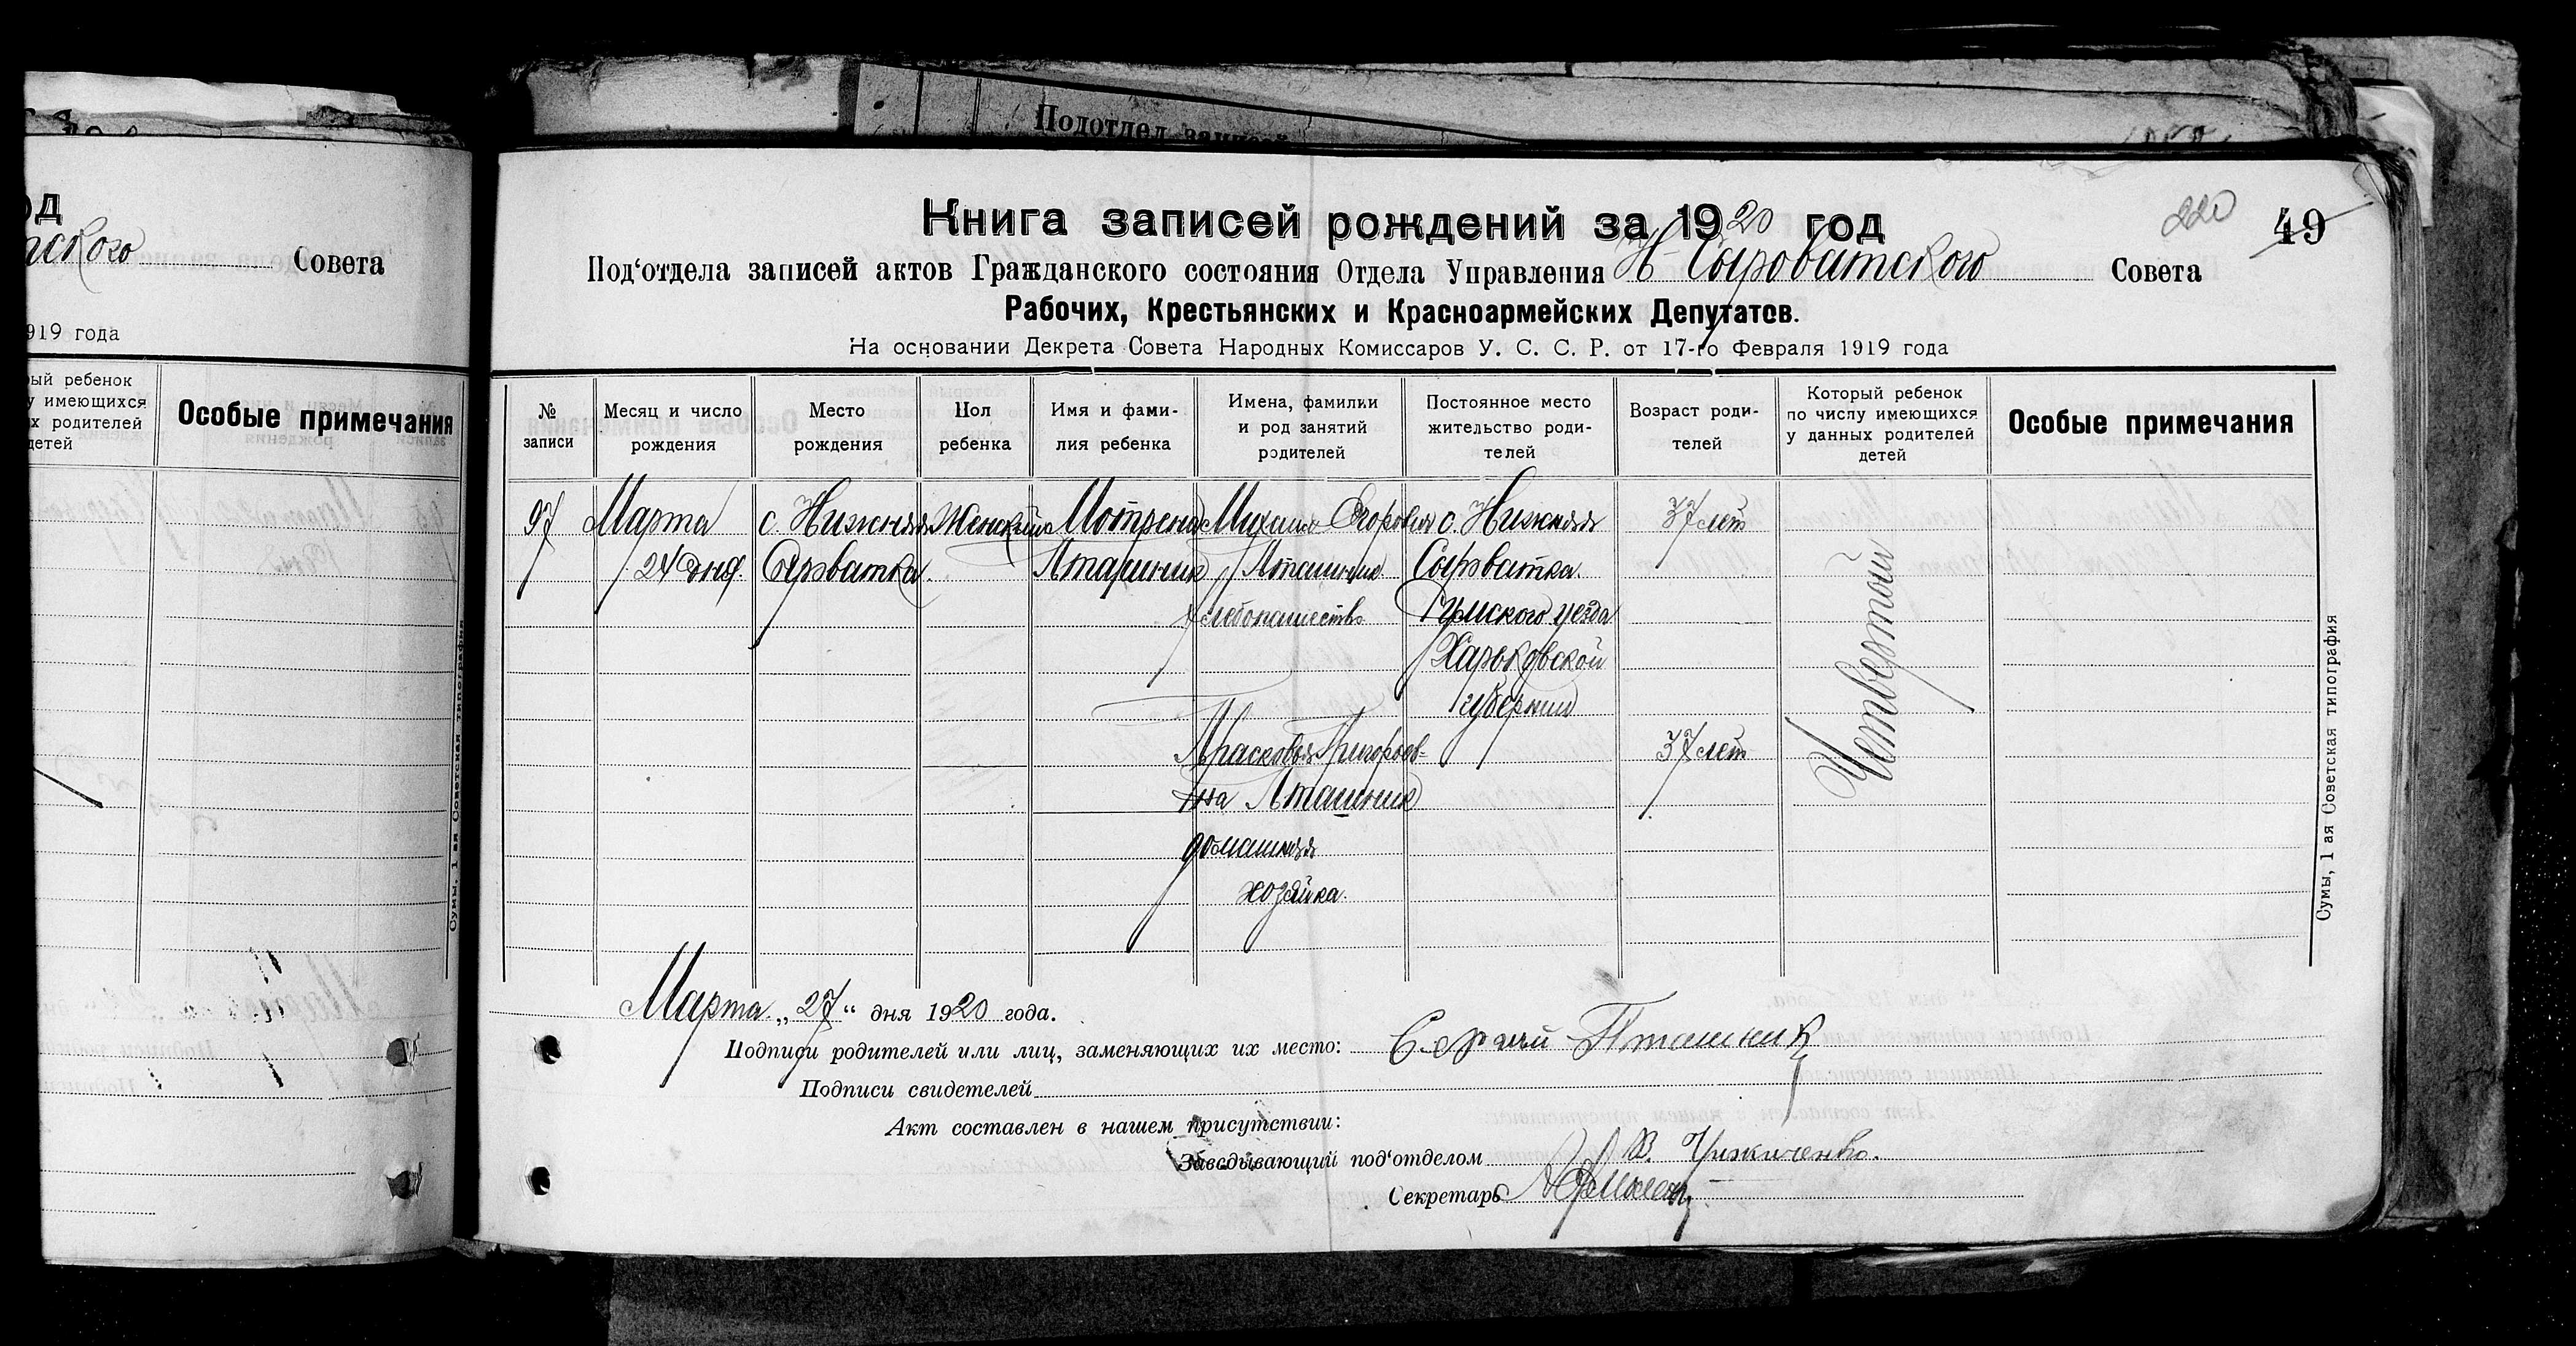 Подотдел записей
од
Совета
919 года
ый ребенок
у имеющихся
х родителей
детей
Особые примечания
Сумы, 1 ая Советская типография
220
49
Книга записей рождений за 1920 год
Под'отдела записей актов Гражданского состояния Отдела Управления Н-Сыроватского Совета
Рабочих, Крестьянских и Красноармейских Депутатов.
На основании Декрета Совета Народных Комиссаров У. С. С. Р. от 17-го Февраля 1919 года
№ записи
Месяц и число рождения
Место рождения
Пол ребенка
Имя и фами-лия ребенка
Имена, фамилии и род занятий родителей
Постоянное место жительство роди-телей
Возраст роди-телей
Который ребенок по числу имеющихся у данных родителей детей
Особые примечания
97 Марта с. Нижняя Женский Мотрена Михаил Егоров с. Нижняя 37 лет
24 дня. Сырватка Пташник Пташник Сырватка.
хлебопашество Сумского уезда
Харьковской
губернии
Прасковья Григорьев- 37 лет
на Пташник
домашняя
хозяйка.
Четвертый
Марта „27“ дня 1920 года.
Подписи родителей или лиц, заменяющих их место: Сергий Пташник
Подписи свидетелей
Акт составлен в нашем присутствии:
Заведывающий под'отделом
Секретарь
Сумы, 1 ая Советская типография